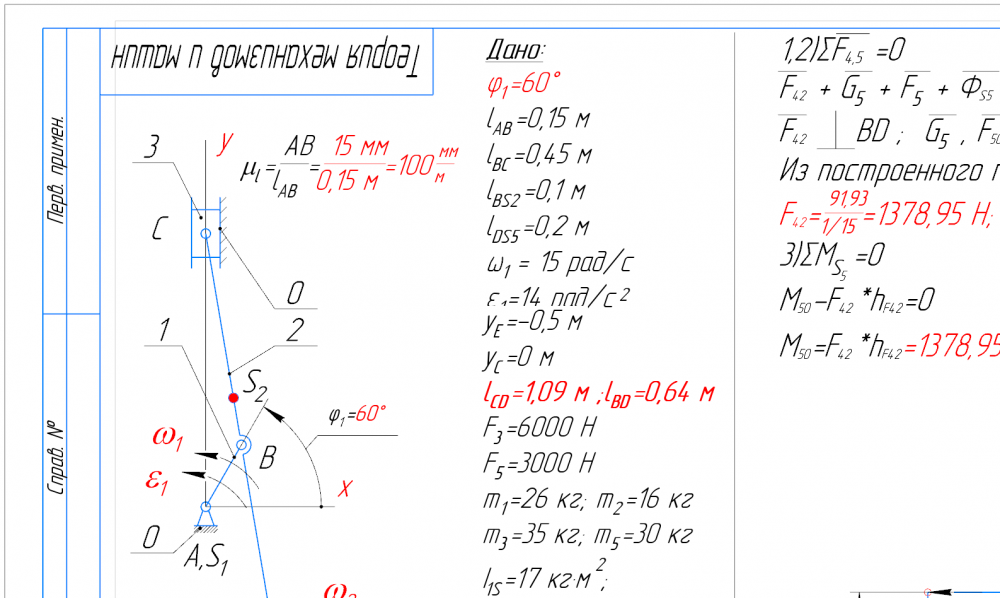 Теория механизмов и машин
Перв. примен.
Справ. №
y
μl= AB/lAB = 15 мм/0,15 м =100 мм/м
3
C
0
1
2
S2
φ1=60°
ω1
B
ε1
x
0
A,S1
Дано:
φ1=60°
lAB=0,15 м
lBC=0,45 м
lBS2=0,1 м
lDS5=0,2 м
ω1 = 15 рад/с
ε1=14 рад/с²
yE=-0,5 м
yC=0 м
lCD=1,09 м ;lBD=0,64 м
F3=6000 Н
F5=3000 Н
m1=26 кг; m2=16 кг
m3=35 кг; m5=30 кг
I1S=17 кг·м²;
1,2)ΣF4,5 =0
F42 + G5 + F5 + ФS5
F42 ⊥ BD ; G5 , F50
Из построенного
F42= 91,93/1/15 =1378,95 Н;
3)ΣMS5 =0
M50-F42 *hF42=0
M50=F42 *hF42=1378,95